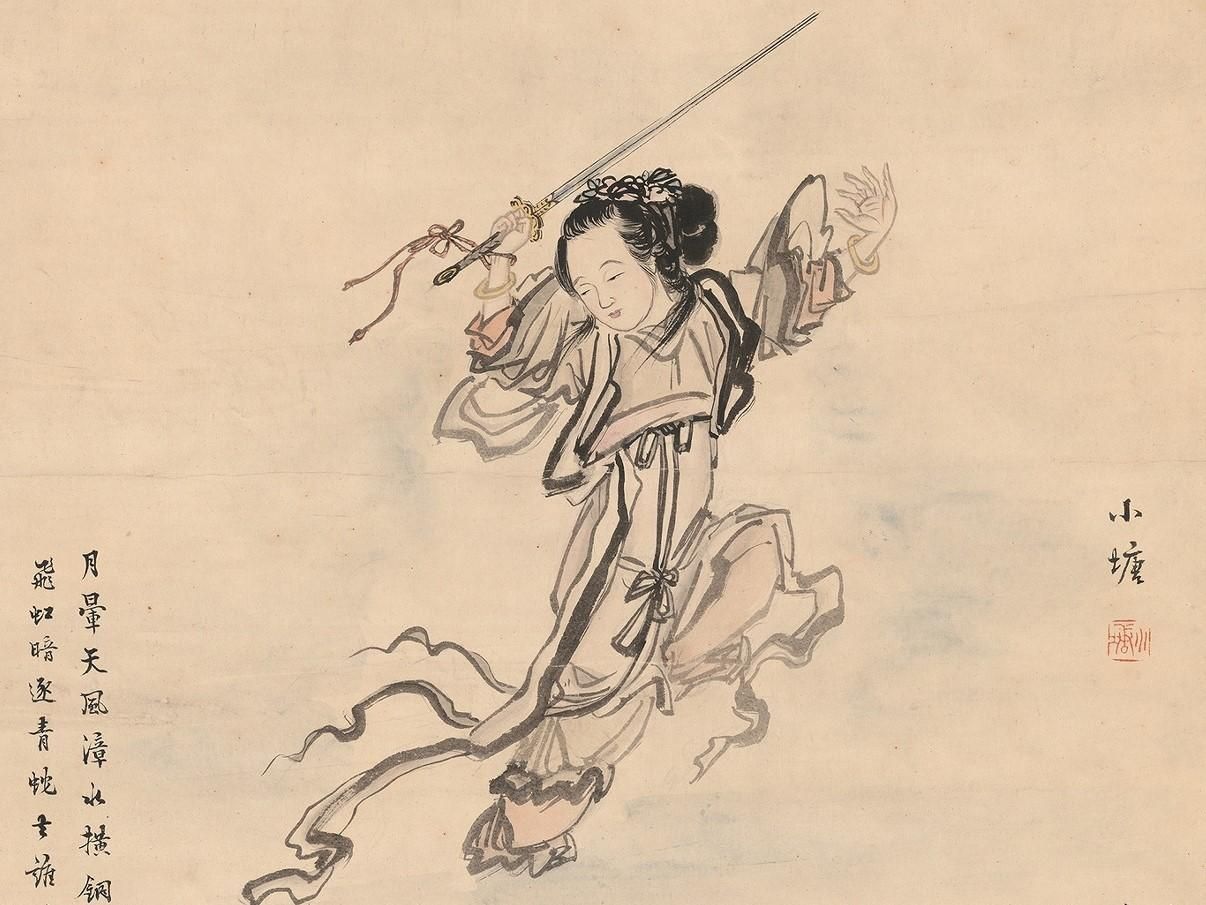 小塘
月暈天風漳水橫銅
飛虹暗逐青虵去誰